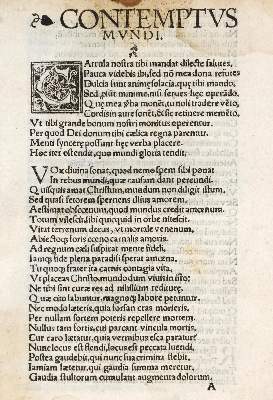 CONTEMPTVS
MVNDI.
CArtula nostra tibi mandat dilecte salutes,
Pauca videbis ibi, sed nõ mea dona refutes
Dulcia sunt animę solacia, quę tibi mando,
Sed, ꝓsūt minime, nisi serues hęc operãdo.
Quę mea ꝓba monēt, tu noli tradere vēto,
Cordis in aure sonēt, & sic retinere memēto,
Vt tibi grande bonum nostri monitus operentur.
Per quod Dei donum tibi cælica regna parentur.
Menti syncerę possunt hęc verba placere.
Hæc iter ostendũt, quo mundi gloria tendit.
VOx diuina sonat, quod nemo spem sibi ponat
In rebus mundi, quæ causam dant pereundi.
Quisquis amat Christum, mundum non diligit istum.
Sed quasi fetorem spernens illius amorem,
Aestimat obscœnum, quod mundus credit amœnum.
Totum vilescit, sibi quicquid in orbe nitescit.
Vitat terrenum decus, vt mortale venenum,
Abiectoque foris cœno carnalis amoris.
Ad regnum cæli suspirat mente fideli,
Iamque fide plena paradisi sperat amœna.
Tu quoque frater ita carnis contagia vita,
Vt placeas Christo, mundo dum viuis in isto;
Ne tibi sint curæ res ad nihilum redituræ,
Quæ cito labuntur, magnoque labore petuntur.
Nec modo læteris, quia forsan cras morieris.
Per nullam sortem poteris repellere mortem.
Nullus tam fortis, cui parcant vincula mortis,
Cur caro lætatur, quia vermibus esca paratur?
Nunc locus est flendi, locus est peccata luendi,
Postea gaudebit, qui nunc sua crimina flebit.
Iamiam lætetur, qui gaudia summa meretur,
Gaudia stultorum cumulant augmenta dolorum.
A